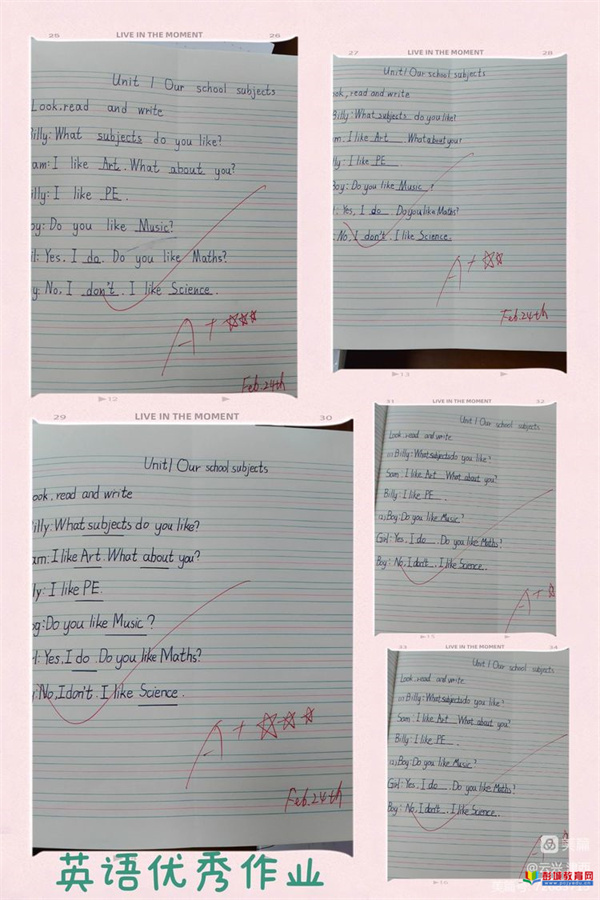 25 LIVE IN THE MOMENT 26
Unit 1 Our school subjects
Look,read and write
Billy: What subjects do you like?
am: I like Art. What about you?
illy: I like PE.
oy: Do you like Music?
il: Yes, I do. Do you like Maths?
y: No, I don't. I like Science.
A+
Feb.24th
12
27 LIVE IN THE MOMENT 28
Unit1 Our school subjects
ook, read and write
Billy: What subjects do you like?
am. I like Art What about you?
illy: I like PE
Boy: Do you like Music?
l: Yes, I do Do you like Maths?
: No, I don't. I like Science.
A+
Feb.24th
13
29 LIVE IN THE MOMENT 30
Unit1 Our school subjects
ook, read and write
illy: What subjects do you like?
am: I like Art. What about you?
ly: I like PE.
Do you like Music?
l: Yes, I do. Do you like Maths?
: No, I don't. I like Science.
A+
Feb.24th
31 LIVE IN THE MOMENT 32
Unit 1 Our school subjects
Look, read and write
(1) Billy: What subjects do you like?
Sam: I like Art What about you?
Billy: I like PE.
(2) Boy: Do you like Music?
Girl: Yes, I do. Do you like Maths?
Boy: No, I don't. I like Science.
A+
15
33 LIVE IN THE MOMENT 34
Unit 1 Our school subjects
Look, read and write
(1) Billy: What subjects do you like?
Sam: I like Art What about you?
Billy: I like PE.
(2) Boy: Do you like Music?
Girl: Yes, I do. Do you like Maths!
Boy: No, I don't. I like Science.
16
英语优秀作业
美篇
彭州教育网